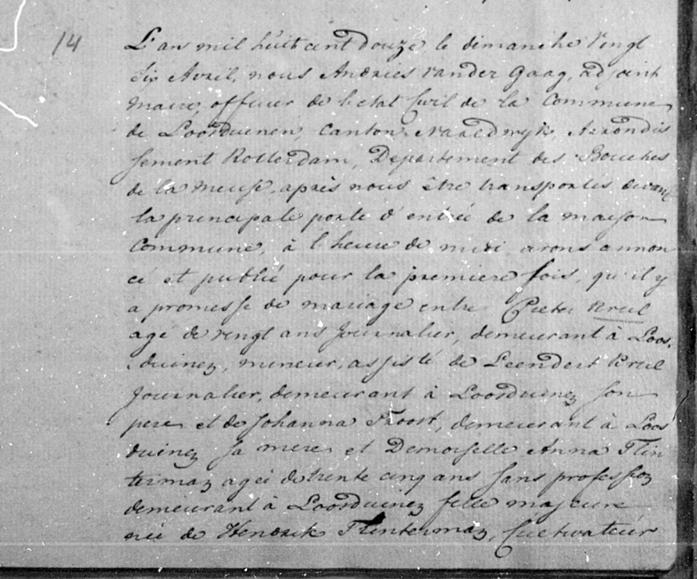 14 L'an mil huit cent douze le dimanche vingt
six Avril, nous Andries vander Gaag, adjoint
maire officier de l'etat Civil de la Commune
de Loosduinen, Canton Naaldwyk, Arrondis
sement Rotterdam, Departement des Bouches
de la Meuse, après nous être transportés devant
la principale porte d'entrée de la maison
Commune, à l'heure de midi avons annon
cé et publié pour la premiere fois, qu'il y
a promesse de mariage entre Pieter
agé de vingt ans Journalier, demeurant à Loos
duinen, mineur, assisté de Leendert
Journalier, demeurant à Loosduinen son
pere et de Johanna Troost, demeurant à Loos
duinen sa mere et Demoiselle Anna Flin
terman ageé de trente cinq ans sans profession
demeurant à Loosduinen fille majeure
née de Hendrik Flinterman, Cultivateur